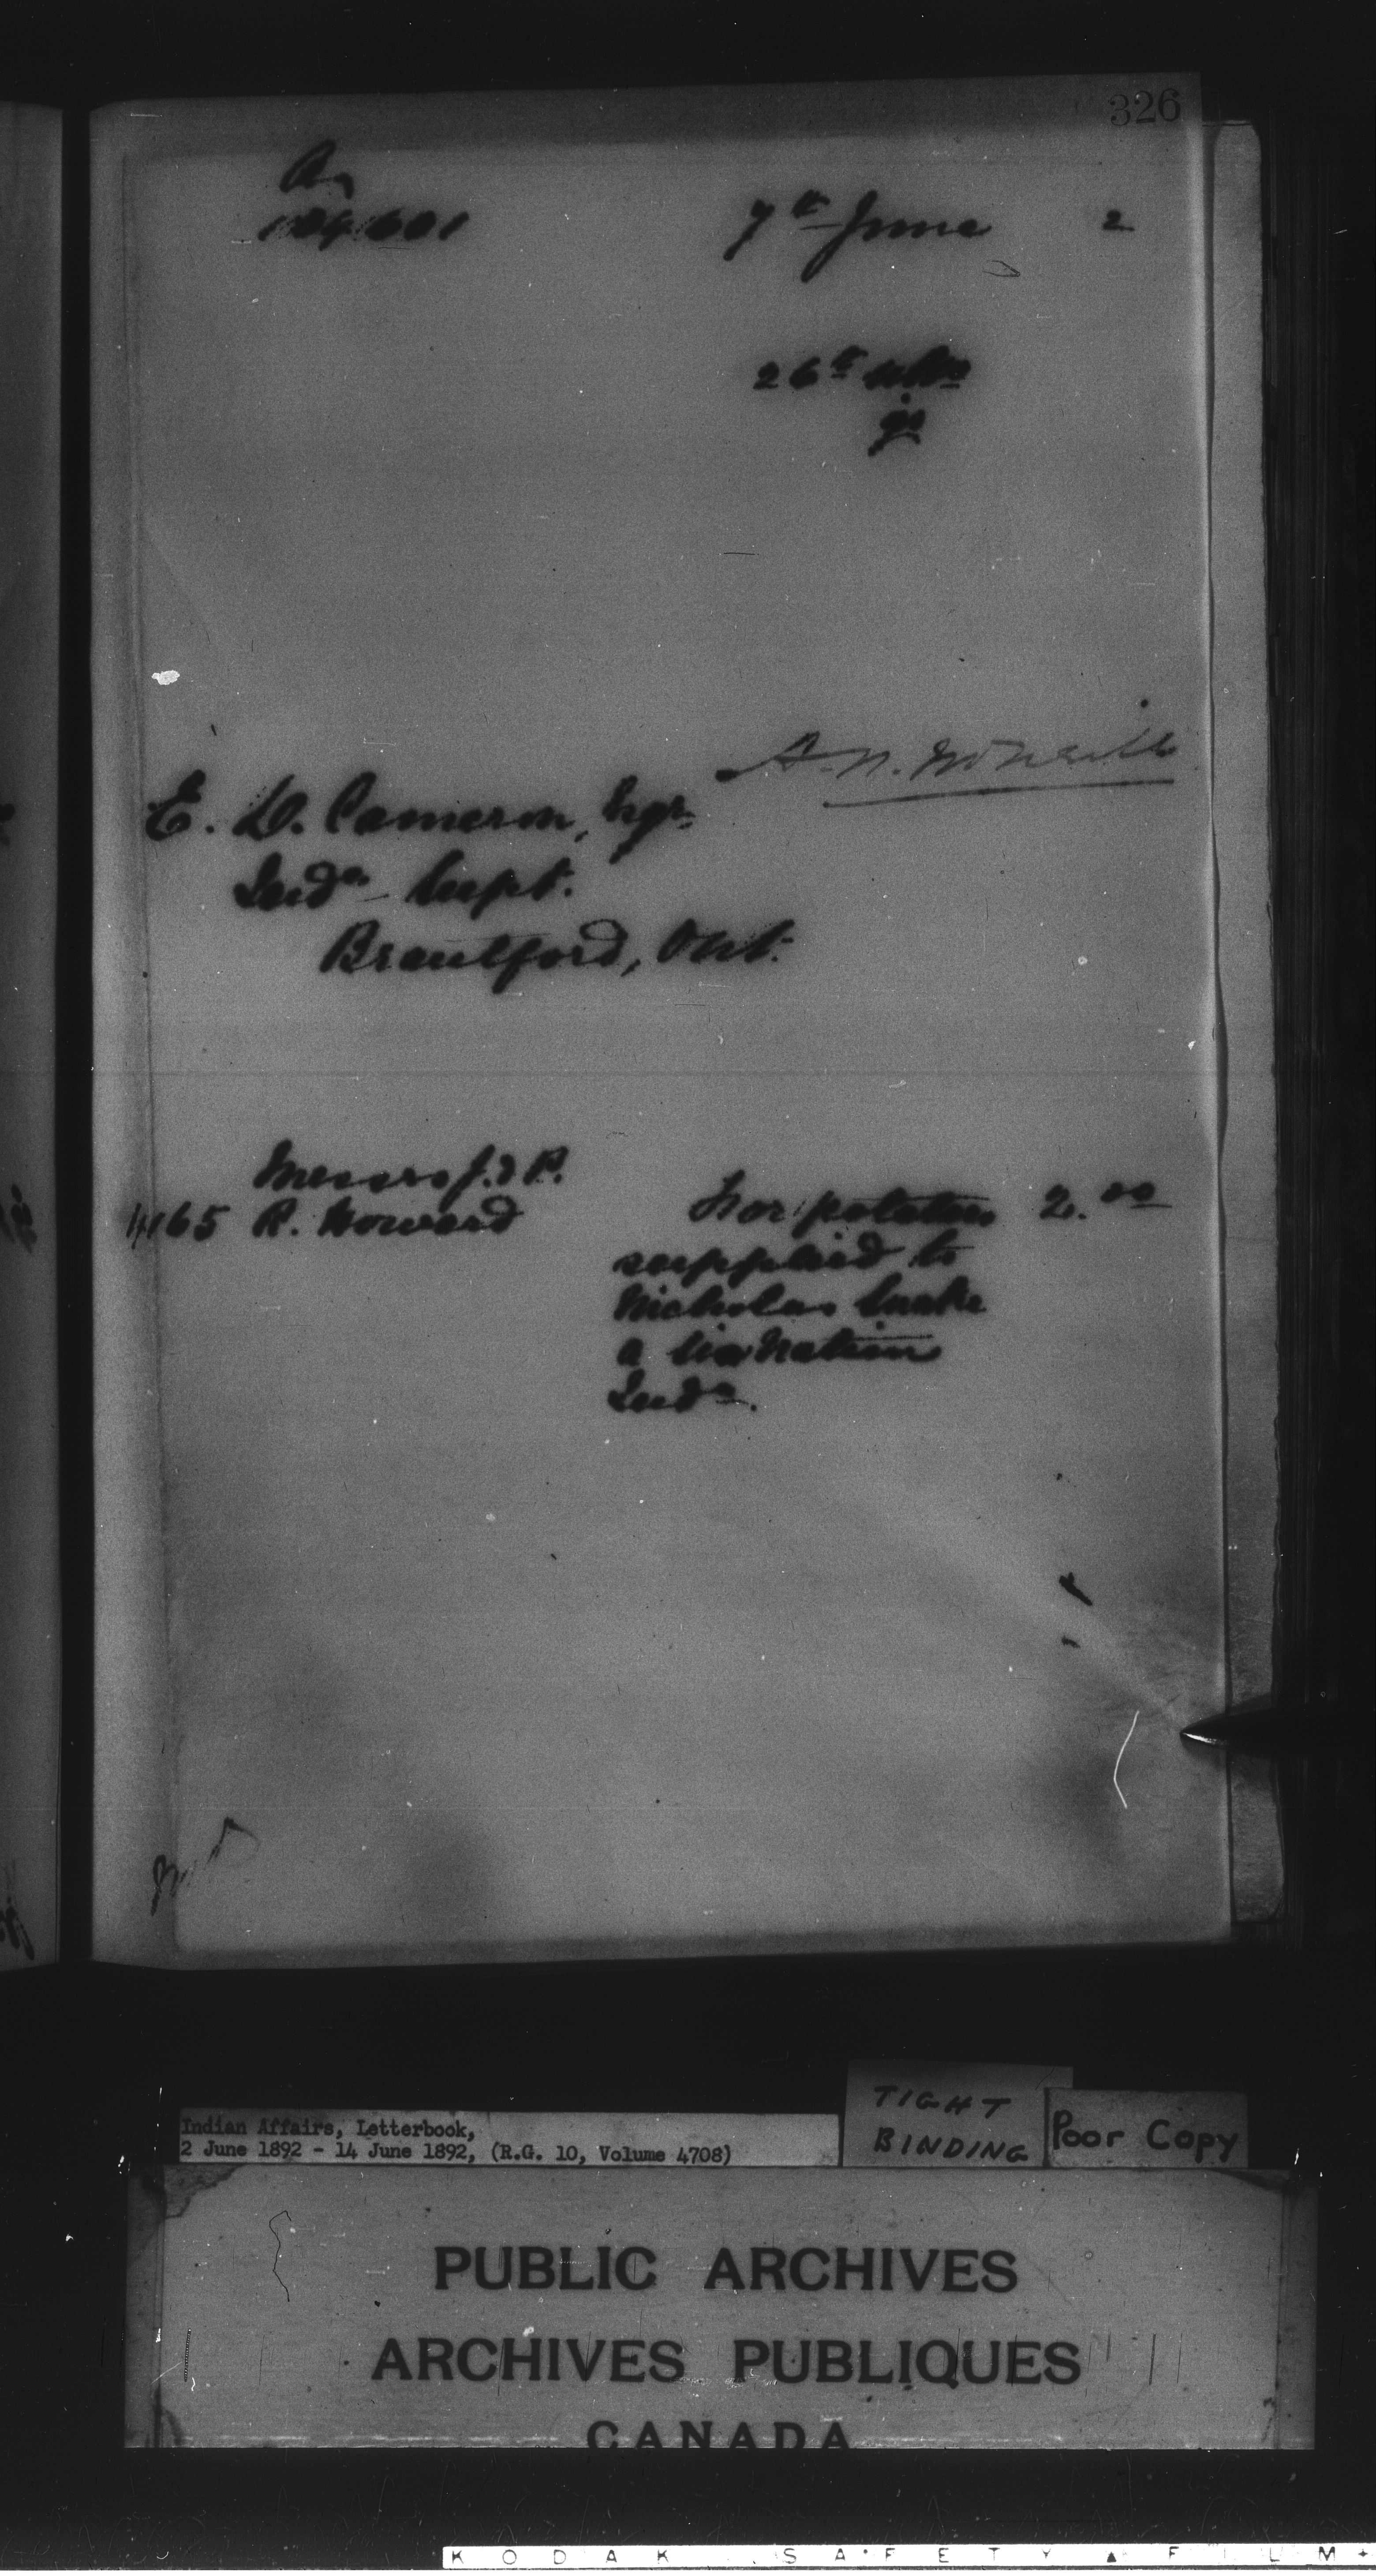 326
7th June 2
26th ulto
A. N. McNeill
E. D. Cameron, Esqr
Indn Supt.
Brantford, Ont.
Messrs J. & P.
4165 R. Howard
For potatoes 2.00
supplied to
Nicholas Snake
a Six Nation
Indn.
Indian Affairs, Letterbook,
2 June 1892 - 14 June 1892, (R.G. 10, Volume 4708)
TIGHT
BINDING
Poor Copy
PUBLIC ARCHIVES
ARCHIVES PUBLIQUES
CANADA
KODAK SAFETY FILM